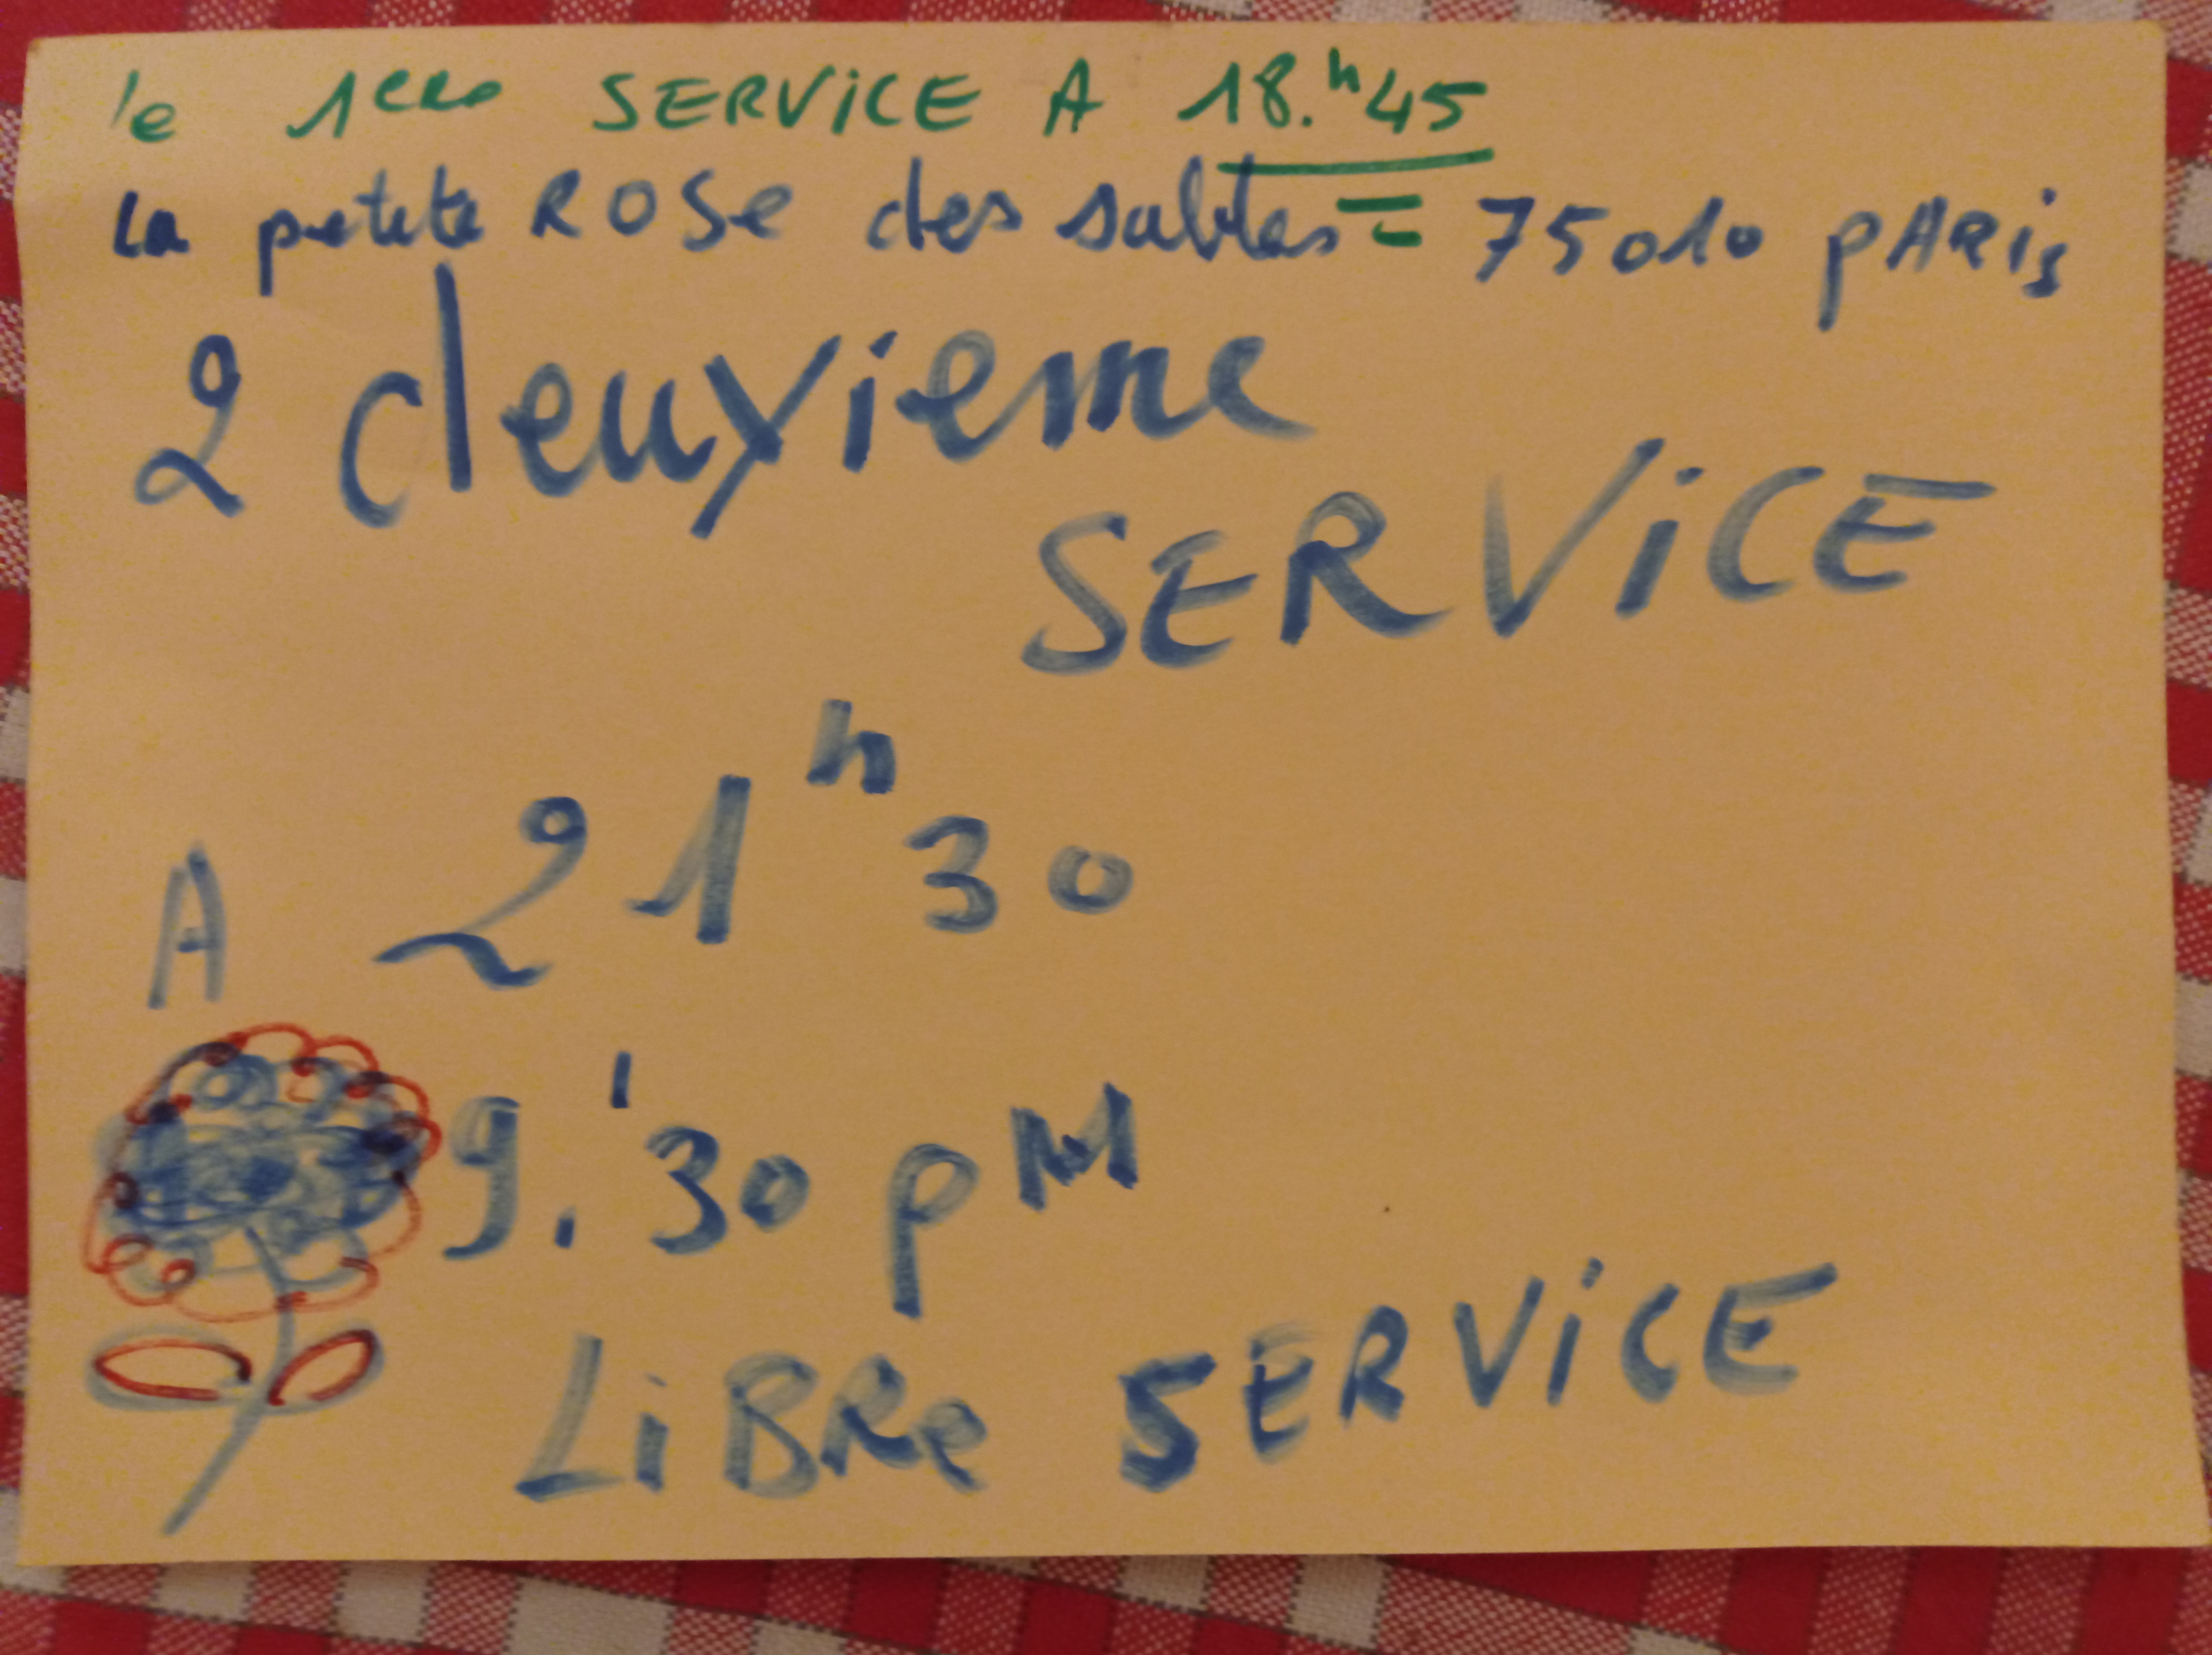 le 1ere SERVICE A 18.h45
la petite ROSE des sables = 75010 pARis
2 deuxieme
SERVICE
A 21h30
9.'30 pM
LiBRe SERVICE